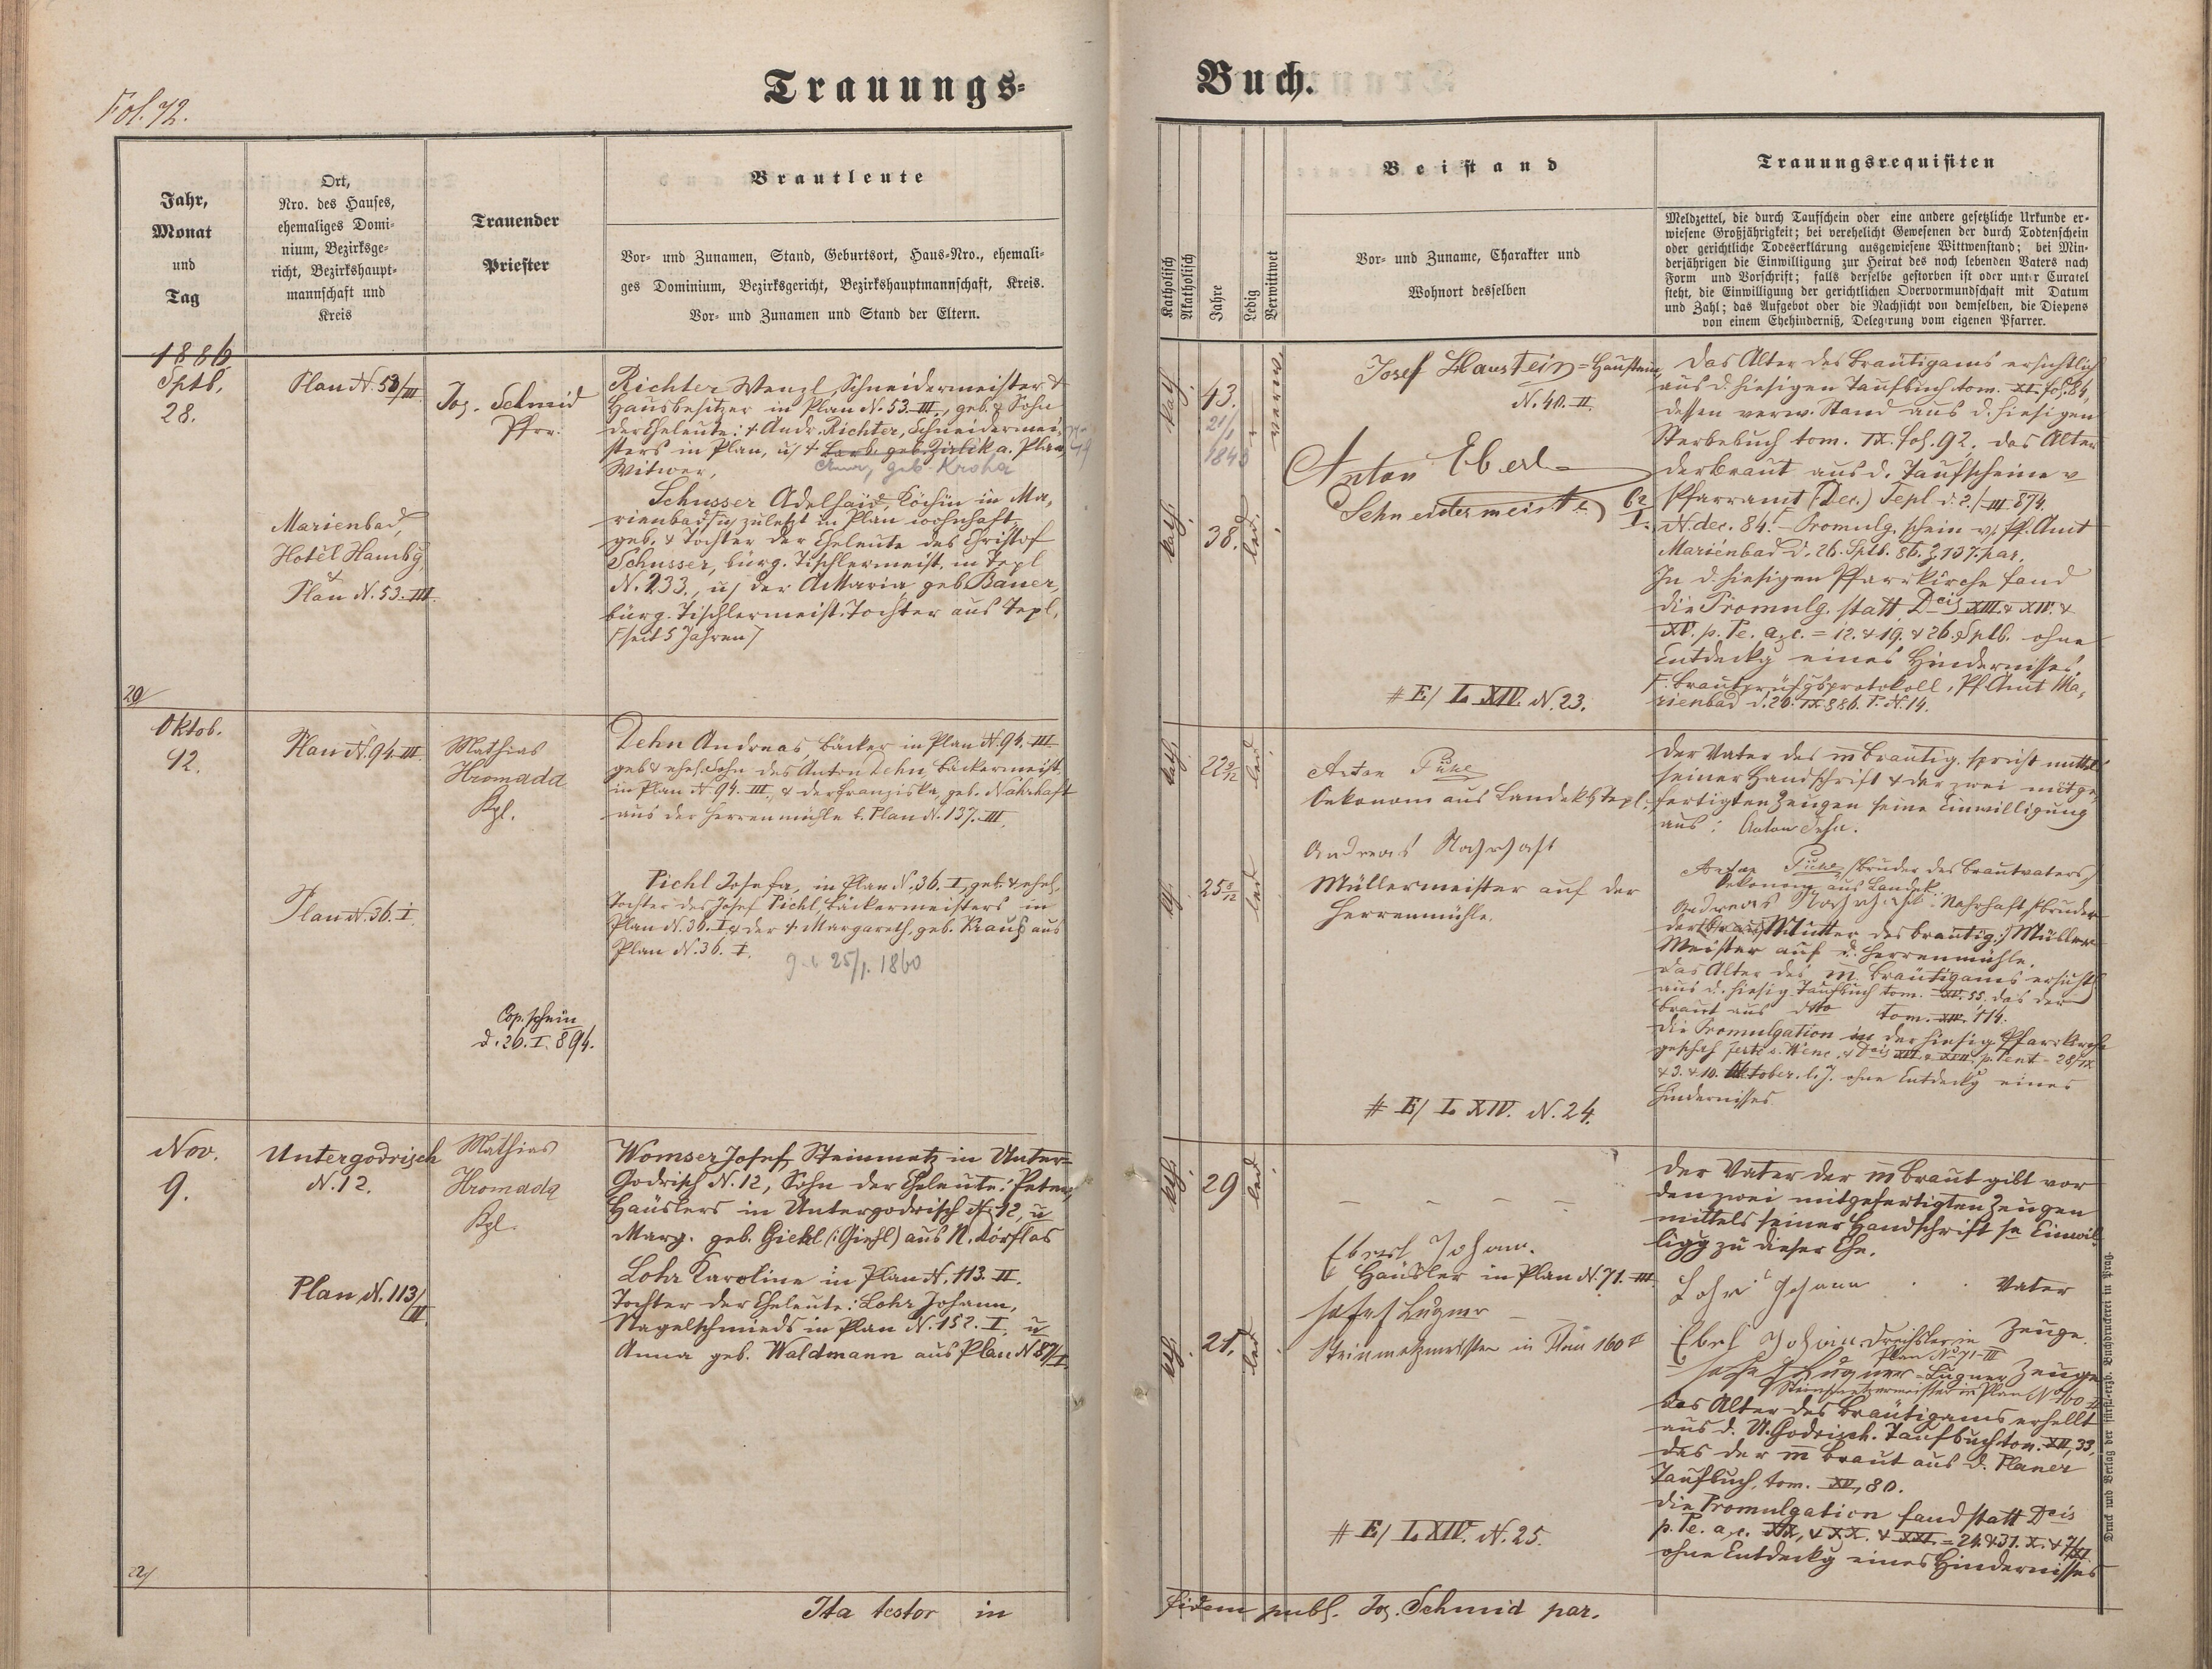 Fol. 72.
Trauungs-
Buch.
Jahr,
Monat
und
Tag
Ort,
Nro. des Hauses,
ehemaliges Domi-
nium, Bezirksge-
richt, Bezirkshaupt-
mannschaft und
Kreis
Trauender
Priester
Brautleute
Vor- und Zunamen, Stand, Geburtsort, Haus-Nro., ehemali-
ges Dominium, Bezirksgericht, Bezirkshauptmannschaft, Kreis.
Vor- und Zunamen und Stand der Eltern.
Katholisch
Akatholisch
Jahre
Ledig
Verwittwet
Beistand
Vor- und Zuname, Charakter und
Wohnort desselben
Trauungsrequisiten
Meldzettel, die durch Taufschein oder eine andere gesetzliche Urkunde er-
wiesene Großjährigkeit; bei verehelicht Gewesenen der durch Todtenschein
oder gerichtliche Todeserklärung ausgewiesene Wittwenstand; bei Min-
derjährigen die Einwilligung zur Heirat des noch lebenden Vaters nach
Form und Vorschrift; falls derselbe gestorben ist oder unter Curatel
steht, die Einwilligung der gerichtlichen Obervormundschaft mit Datum
und Zahl; das Aufgebot oder die Nachsicht von demselben, die Dispens
von einem Ehehinderniß, Delegirung vom eigenen Pfarrer.
1886
Sptb.
28.
Plan N. 53/III
Jos. Schmid
Pfrr.
Richter Wenzl, Schneidermeister &
Hausbesitzer in Plan N. 53. III., geb. & Sohn
der Eheleute: + Andr. Richter, Schneidermei-
sters in Plan, u/ + Barb. geb. Zirlik a. Plan,
Witwer,
geb Kroha
Marienbad,
Hotêl Hambg,
Plan N. 53. III.
Schusser Adelhaid, Köchin in Ma-
rienbad u/ zuletzt in Plan wohnhaft,
geb. & Tochter der Eheleute des Christof
Schusser, bürg. Tischlermeist. in Tepl
N. 233., u/ der A. Maria, geb. Bauer,
bürg. Tischlermeist. Tochter aus Tepl,
seit 5 Jahren
20/
kath.
43.
21/1
1843
verw.
kath.
38.
led.
Josef Haustein = Haustein,
N. 40. II.
Anton Eberl
Schneidermeister 62/I.
# E/ L. XIV. N. 23.
Das Alter des Bräutigams ersichtlich
aus d. hiesigen Taufbuch tom. XI. fol. 84,
dessen verw. Stand aus d. hiesigen
Sterbebuch tom. IX. fol. 92, das Alter
der Braut aus d. Taufscheine v
Pfarramt (Dec.) Tepl d. 2./III 874.
N. dec. 84. Promulg. schein v. Pf. Amt
Marienbad d. 26. Sptb. 86. Z 137. par.
In d. hiesigen Pfarrkirche fand
die Promulg. statt Dcis XIII. & XIV. &
XV. p. Pe. a. c. = 12. & 19. & 26. Sptb. ohne
Entdeckg eines Hindernisses.
Brautprüfgsprotokoll, Pf. Amt Ma-
rienbad d. 26. IX. 886. P. N. 14.
Oktob.
12.
Plan N. 94. III
Mathias
Hromada
Kpl.
Zehn Andreas, Bäcker in Plan N. 94. III
geb & ehel. Sohn des Anton Zehn, Bäckermeist.
in Plan N. 94. III., & der Franziska, geb. Nahrhaft
aus der Herrenmühle b. Plan N. 137. III.
Plan N. 36. I.
Pichl Josefa, in Plan N. 36. I, geb. & ehel.
Tochter des Josef Pichl, Bäckermeisters in
Plan N. 36. I & der + Margareth, geb. Krauß aus
Plan N. 36. I.
geb 25/1. 1860
Cop. schein
d. 26. I. 894.
kath.
22 9/12
led.
kth.
25 8/12
led
Anton
Oekonom aus Landek b. Tepl.
Andreas Nahrhaft
Müllermeister auf der
Herrenmühle.
# E/ L. XIV. N. 24.
Der Vater des m Brautig. spricht mittels
seiner Handschrift & der zwei mitge-
fertigten Zeugen seine Einwilligung
aus: Anton Zehn.
Anton Bruder des Brautvaters,
Oekonom aus Landek.
Andreas Nahrhaft = Nahrhaft Bruder
der Mutter des Bräutig. Müller-
Meister auf d. Herrenmühle.
Das Alter des m. Bräutigams ersichtl
aus d. hiesig. Taufbuch tom. XV. 55. das der
Braut aus dtto tom. XIV. 114.
Die Promulgation in der hiesig. Pfarrkirche
geschah festo s. Wenc. & Dcis XVI. & XVII. p. Pent = 28/IX
& 3. & 10. Oktober. l. J. ohne Entdeckg eines
Hindernisses.
Nov.
9.
Untergodrisch
N. 12.
Mathias
Hromada
Kpl.
Womser Josef, Steinmetz in Unter-
Godrisch N. 12, Sohn der Eheleute: Peter,
Häuslers in Untergodrisch N. 12, u
Marg. geb. Giehl (: Giehl) aus N. Dörflas
Plan N. 113/II.
Lohr Karoline in Plan N. 113. II.
Tochter der Eheleute: Lohr Johann,
Nagelschmieds in Plan N. 152. I, u
Anna geb. Waldmann aus Plan N 87/I
22/
kth.
29
led
kth.
21.
led
Eberl Johann.
Häusler in Plan N. 71. III
Josef Lugner
Steinmetzmeister in Plan 160 II
# E/ L. XIV. N. 25.
Der Vater der m Braut gibt vor
den zwei mitgefertigten Zeugen
mittels seiner Handschrift se Einwil-
ligg zu dieser Ehe.
Lohr Johann Vater
Eberl Johann Zeuge.
Plan No 71-III
Josef Lugner = Lugner Zeuge
Steinmetzmeister in Plan No 160 II
Das Alter des Bräutigams erhellt
aus d. U. Godrisch. Taufbuch tom. XII, 33,
das der m Braut aus d. Planer
Taufbuch, tom. XV, 80.
Die Promulgation fand statt Dcis
p. Pe. a. c. XIX, & XX. & XXI. = 24. & 31. X. & 7/XI
ohne Entdeckg eines Hindernisses
Ita testor in
fidem publ. Jos. Schmid par.
Druck und Verlag der fürst-erzb. Buchdruckerei in Prag.